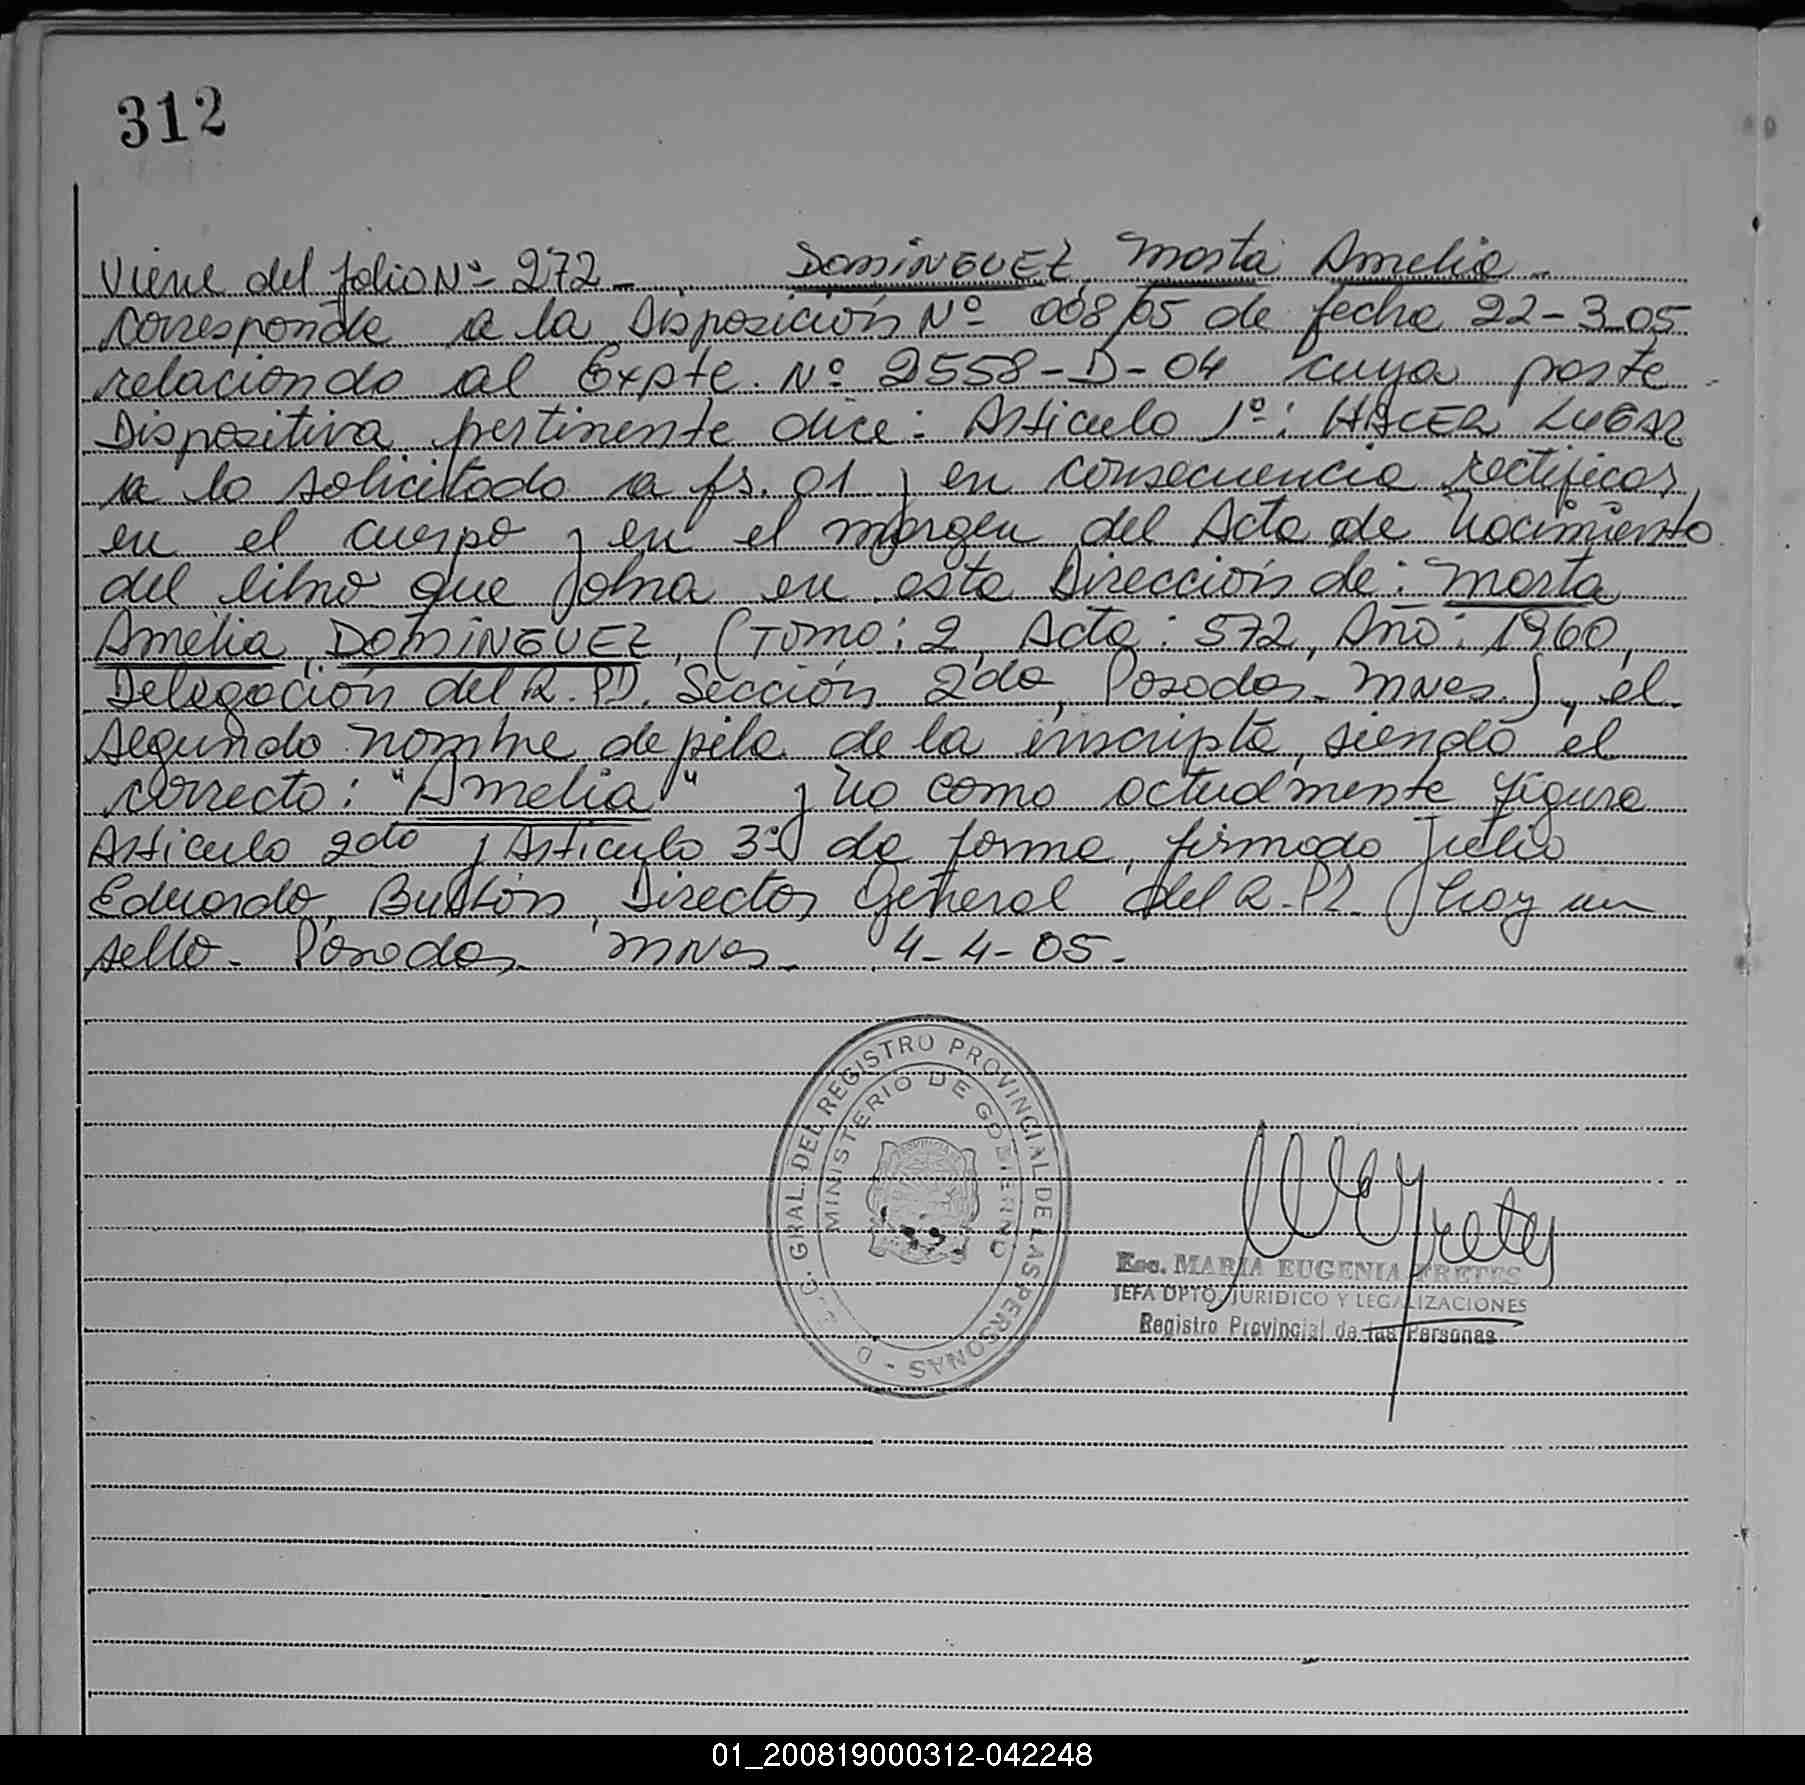 312
Viene del folio Nº 272 - DOMINGUEZ, Marta Amelia -
Corresponde a la Disposición Nº 008/05 de fecha 22-3-05
relaciondo al Expte. Nº 2558-D-04 cuya parte
Dispositiva pertinente dice: Articulo 1º: HACER LUGAR
a lo solicitado a fs. 01 y en consecuencia rectificar,
en el cuerpo y en el margen del Acta de Nacimiento
del libro que obra en esta Dirección de: Marta
Amelia DOMINGUEZ, (Tomo: 2, Acta: 572, Año: 1960,
Delegación del R.P.P. Sección 2da, Posadas - Mnes.), el
segundo nombre de pila de la inscripta, siendo el
correcto: "Amelia" y no como actualmente figura
Articulo 2do y Articulo 3º de forma, firmado Julio
Eduardo, Director General del R.P.P. hay un
sello - Posadas Mnes - 4-4-05.
DIREC. GRAL. DEL REGISTRO PROVINCIAL DE LAS PERSONAS
MINISTERIO DE GOBIERNO
Esc. MARIA EUGENIA FRETES
JEFA DPTO. JURIDICO Y LEGALIZACIONES
Registro Provincial de las Personas
01_200819000312-042248